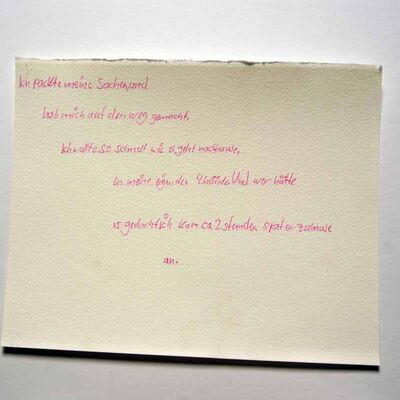 Ich packte meine Sachen und
hab mich auf den weg gemacht,
Ich wollte so schnell wie es geht nachhause,
in meine eigenden 4 Wände. Und wer hätte
es gedacht ich kam ca 2 stunden später zuhause
an.